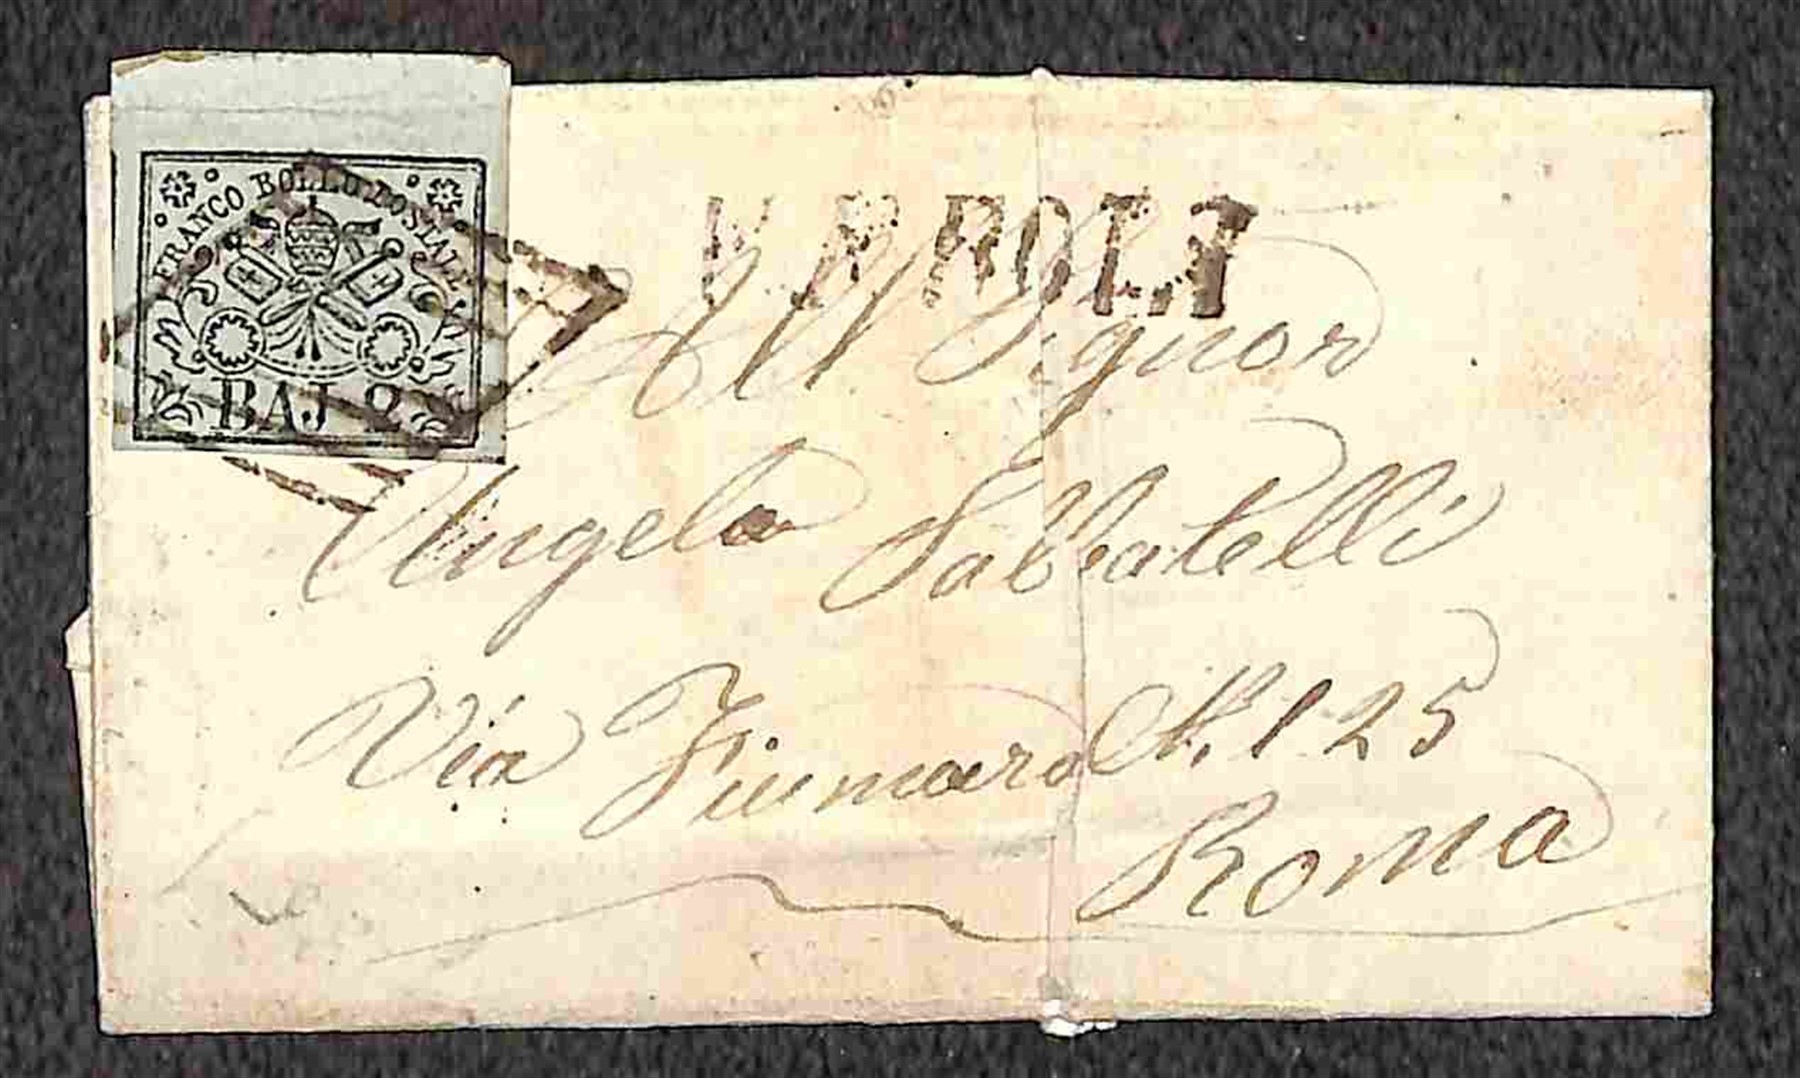 FRANCO BOLLO POSTALE
BAJ 2
VEROLI
All Signor
Angelo Sabbatelli
Via Fiumara N. 125
Roma